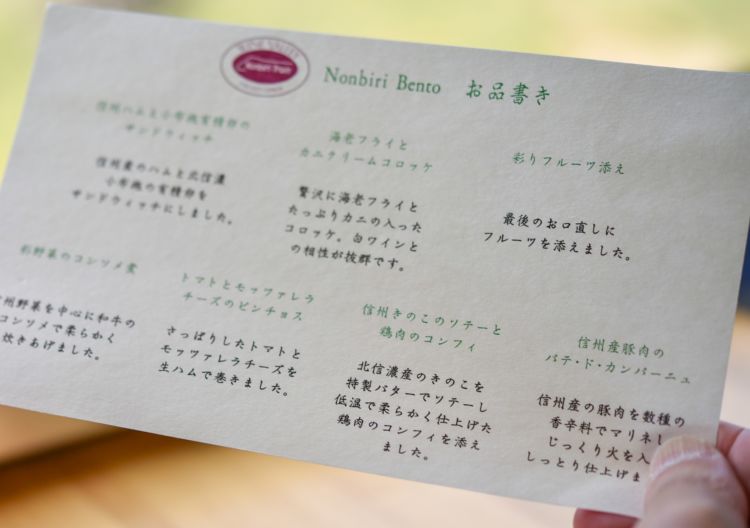 Nonbiri Bento お品書き
信州ハムと小布施有精卵の
サンドウィッチ
信州産のハムと北信濃
小布施の有精卵を
サンドウィッチにしました。
海老フライと
カニクリームコロッケ
贅沢に海老フライと
たっぷりカニの入った
コロッケ。白ワインと
の相性が抜群です。
彩りフルーツ添え
最後のお口直しに
フルーツを添えました。
彩野菜のコンソメ煮
州野菜を中心に和牛の
コンソメで柔らかく
炊きあげました。
トマトとモッツァレラ
チーズのピンチョス
さっぱりしたトマトと
モッツァレラチーズを
生ハムで巻きました。
信州きのこのソテーと
鶏肉のコンフィ
北信濃産のきのこを
特製バターでソテーし
低温で柔らかく仕上げた
鶏肉のコンフィを添え
ました。
信州産豚肉の
パテ・ド・カンパーニュ
信州産の豚肉を数種の
香辛料でマリネし
じっくり火を入
しっとり仕上げま